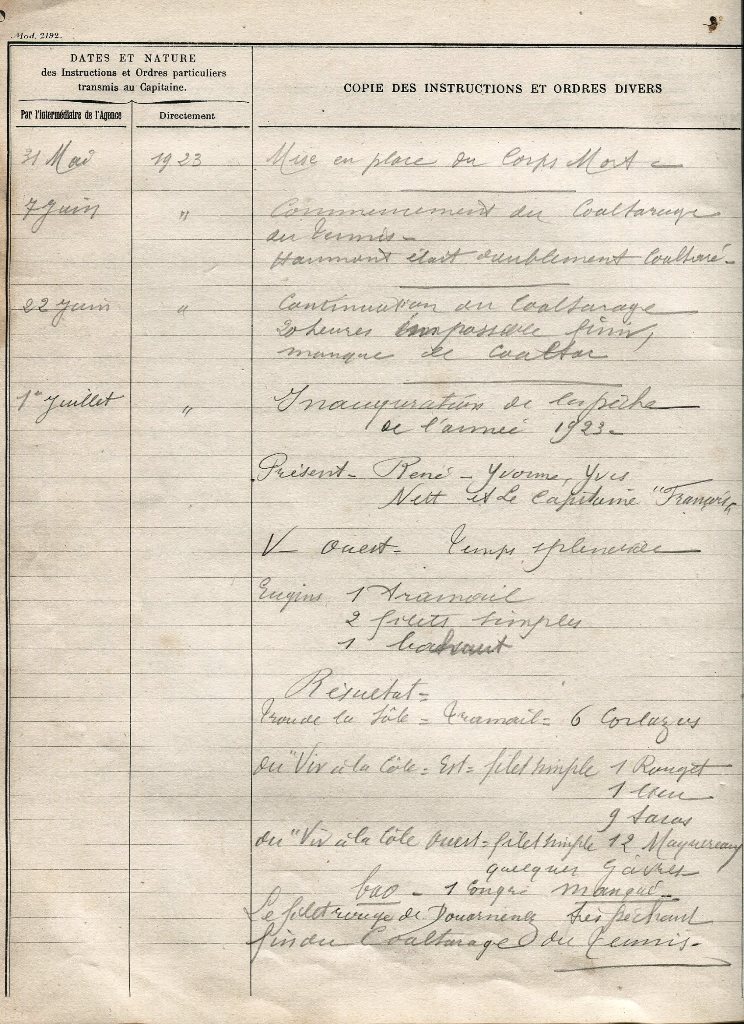 Mod. 2192.
DATES ET NATURE
des Instructions et Ordres particuliers
transmis au Capitaine.
COPIE DES INSTRUCTIONS ET ORDRES DIVERS
Par l'intermédiaire de l'Agence
Directement
31 Mai 1923 Mise en place du Corps Mort
7 Juin " Commencement du Coaltarage
du Tennis -
Haumont était doublement Coaltaré -
22 Juin " Continuation du Coaltarage
20 heures impossible finir,
manque de Coaltar
1er Juillet " Inauguration de la pêche
de l'année 1923 -
Présent - René - Yvonne, Yves
Nett et Le Capitaine "François"
V - Ouest - Temps splendide
Engins 1 tramail
2 filets simples
1 bahaut
Résultat =
Trou de la Sôle = tramail = 6 Corlazes
du "Viv à la Côle = Est = filet simple 1 Rouget
1 lieu
9 taras
du "Viv à la Côle Ouest = filet simple 12 Maquereaux
quelques Gâvres
bao - 1 Congre manqué -
Le filet rouge de Douarnenez très pêchant
fin du Coaltarage du Tennis -